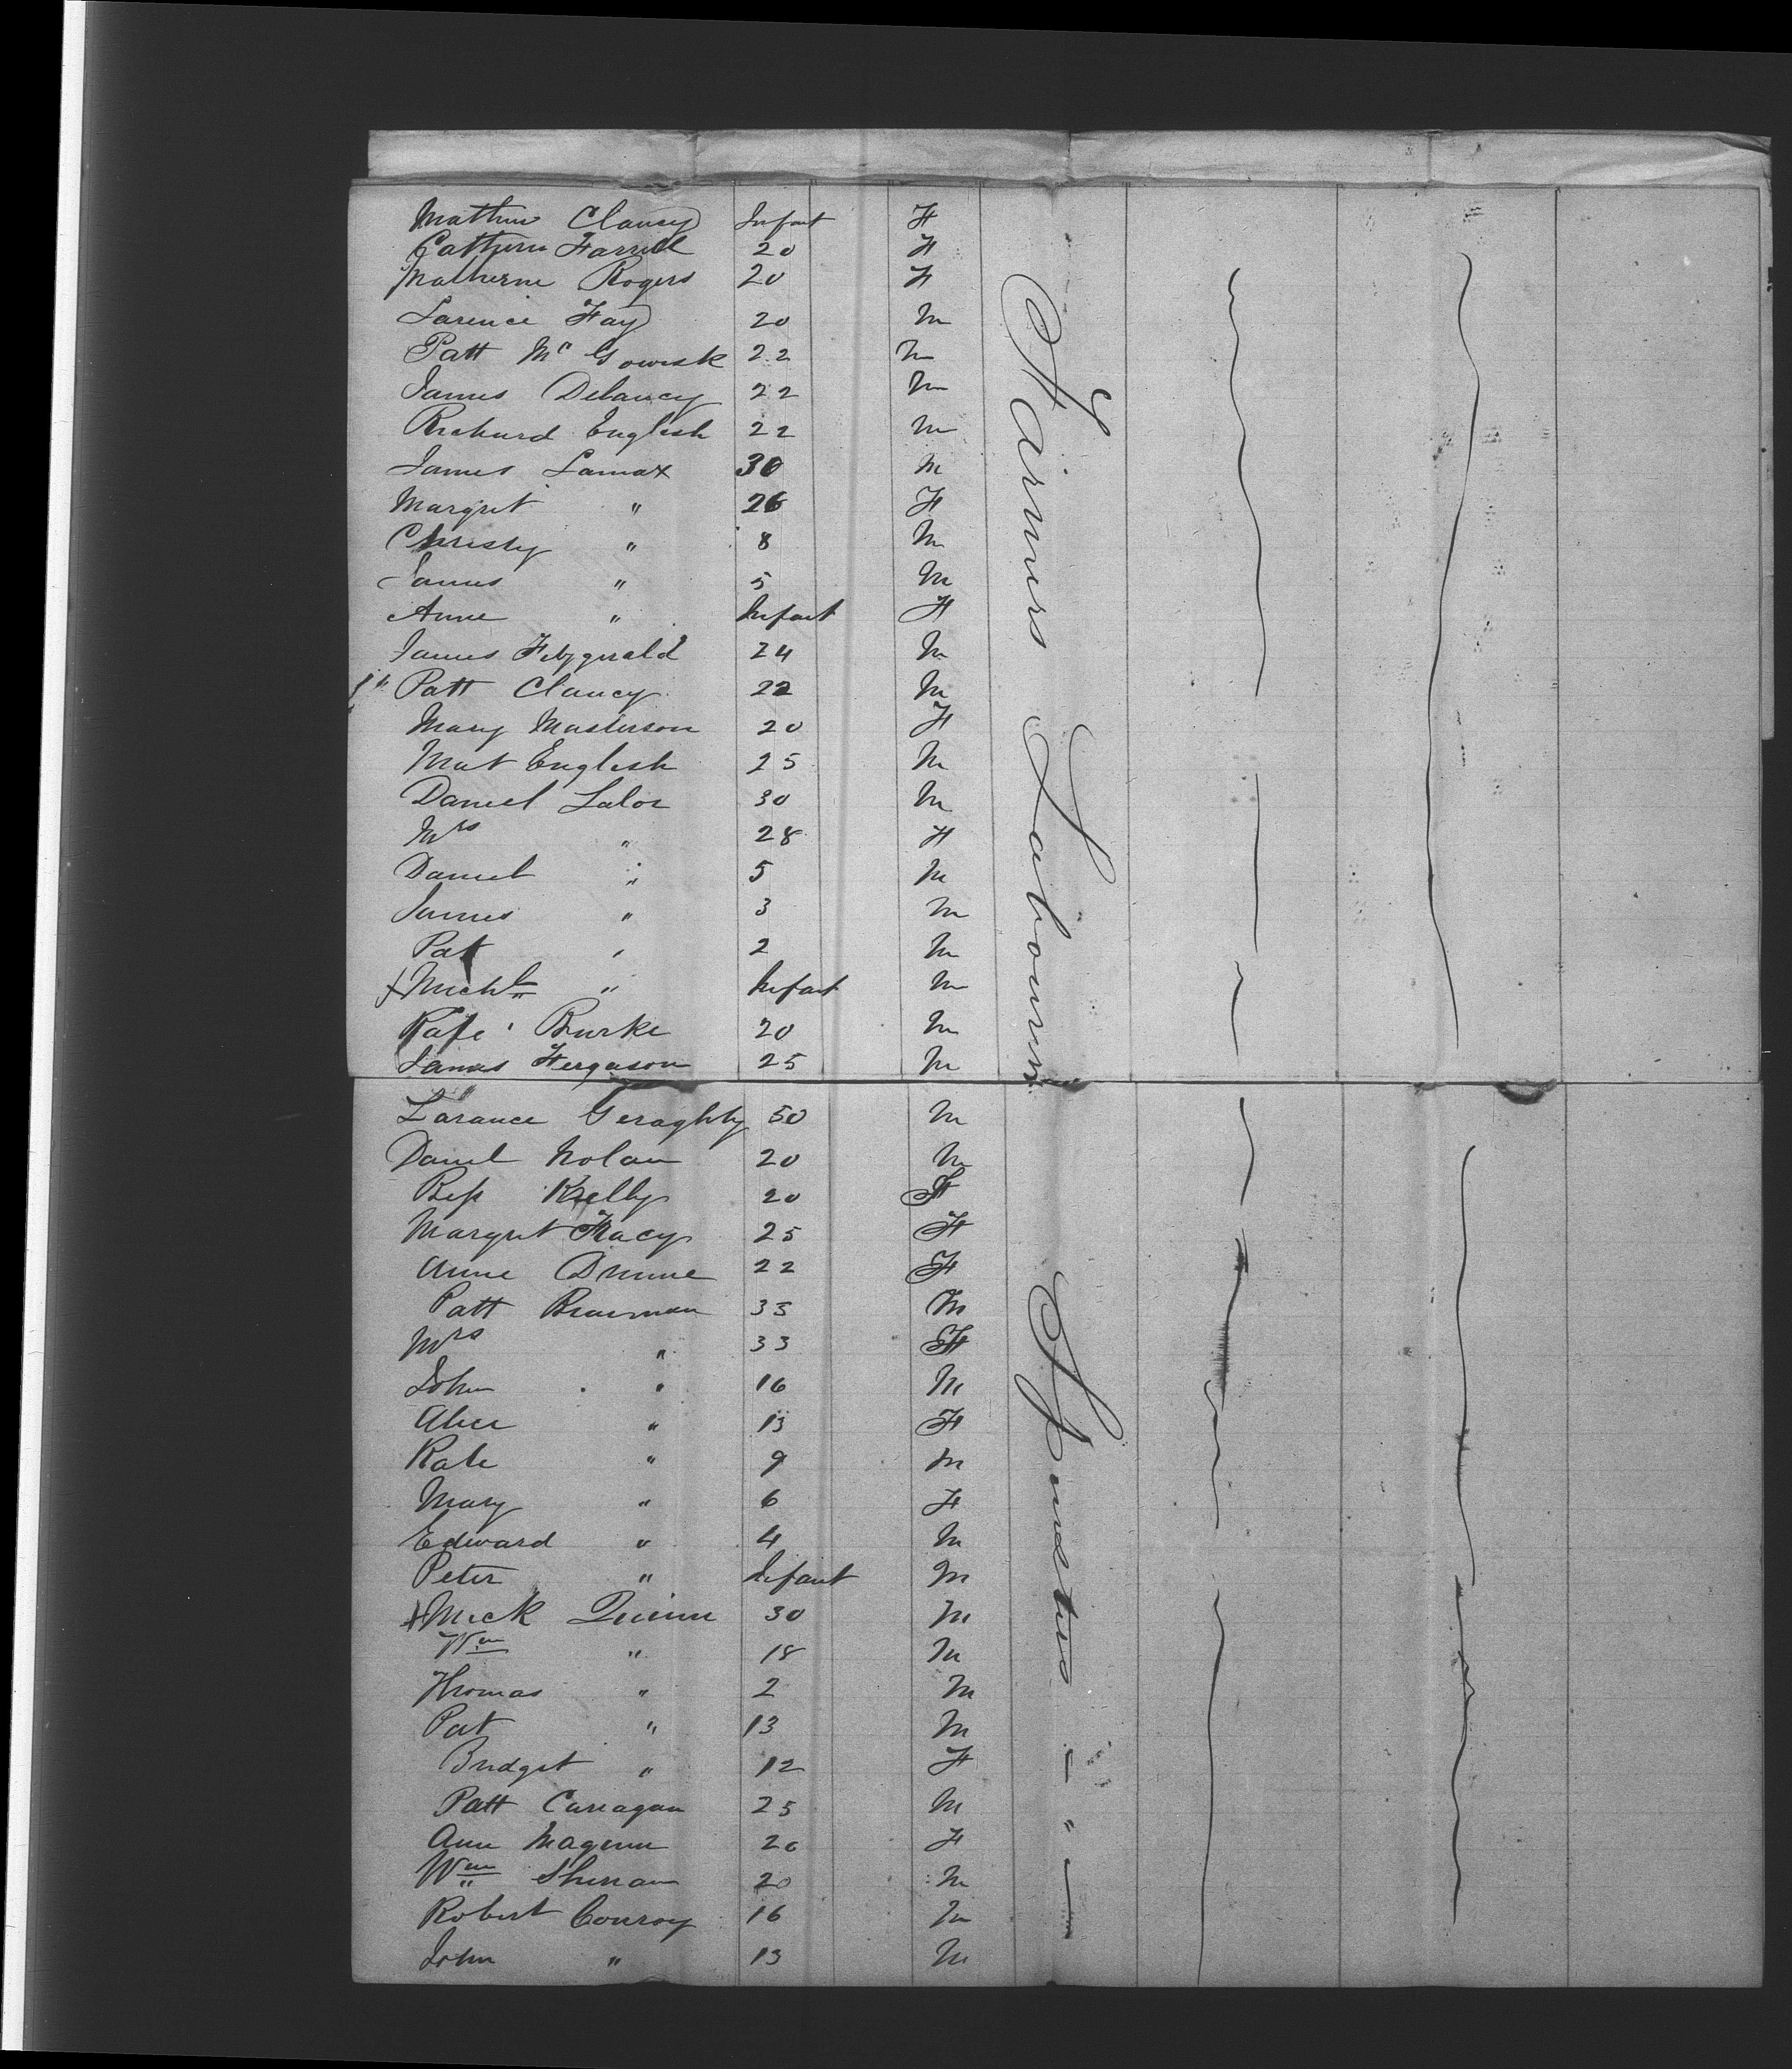 Mathew Clancy Infant F
Cathern Farrell 20 F
Matherne Rogers 20 F
Larence Fay 20 M
Patt Mc Gowsk 22 M
James Delancy 22 M
Richard English 22 M
James Lamax 30 M
Margret " 26 F
Christy " 8 M
James " 5 M
Anne " Infant F
James Fitzgerald 24 M
Patt Clancy 22 M
Mary Masterson 20 F
Mat English 25 M
Daniel Lalor 30 M
Mrs " 28 F
Daniel " 5 M
James " 3 M
Pat " 2 M
Michl " Infant M
Burke 20 M
James Fergason 25 M
Farmers & Labourers
Larance Geraghty 50 M
Danel Nolan 20 M
Bess Kelly 20 F
Margret Tracy 25 F
Anne Dunne 22 F
Patt 35 M
Mrs " 33 F
John " 16 M
Alice " 13 F
Kate " 9 M
Mary " 6 F
Edward " 4 M
Peter " Infant M
Mick Quinn 30 M
Wm " 18 M
Thomas " 2 M
Pat " 13 M
Bridget " 12 F
Patt Carragan 25 M
Ann Magenn 20 F
Wm 20 M
Robert Conroy 16 M
John " 13 M
Spinsters — " —